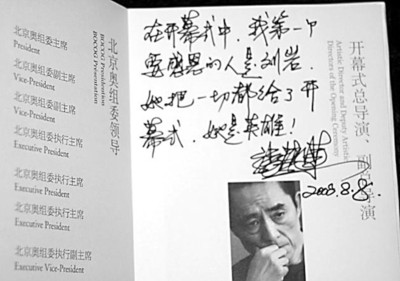 北京奥组委主席
President
北京奥组委副主席
Vice-President
北京奥组委副主席
Vice-President
北京奥组委执行主席
Executive President
北京奥组委执行主席
Executive President
北京奥组委执行主席
Executive President
北京奥组委执行副主席
Executive Vice-President
北京奥组委领导
BOCOG
BOCOG
在开幕式中.我第一个
要感恩的人是刘岩.
她把一切都给了开
幕式.她是英雄!
2008.8.8.
开幕式总导演、副总导演
Artistic Director and Deputy Artistic
Directors of the Opening Ceremony